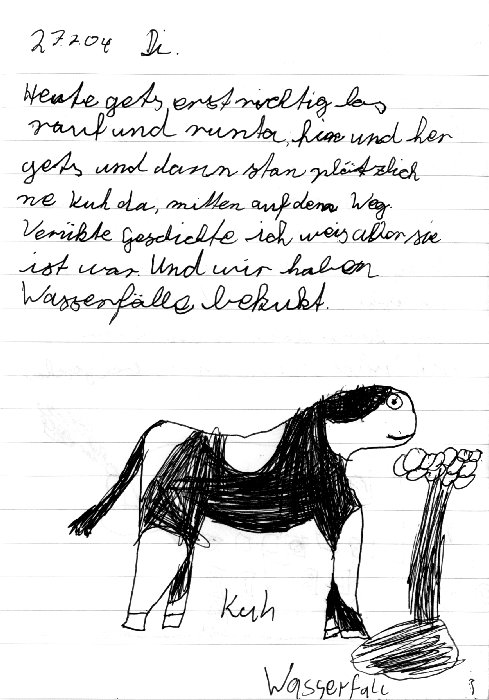 27.7.04 Di.
Heute gets erst richtig los
rauf und runta, hin und her
gets und dann stan plötzlich
ne Kuh da, mitten auf dem Weg.
Verükte Geschichte ich weis aber sie
ist war. Und wir haben
Wasserfälle bekukt.
Kuh
Wasserfall